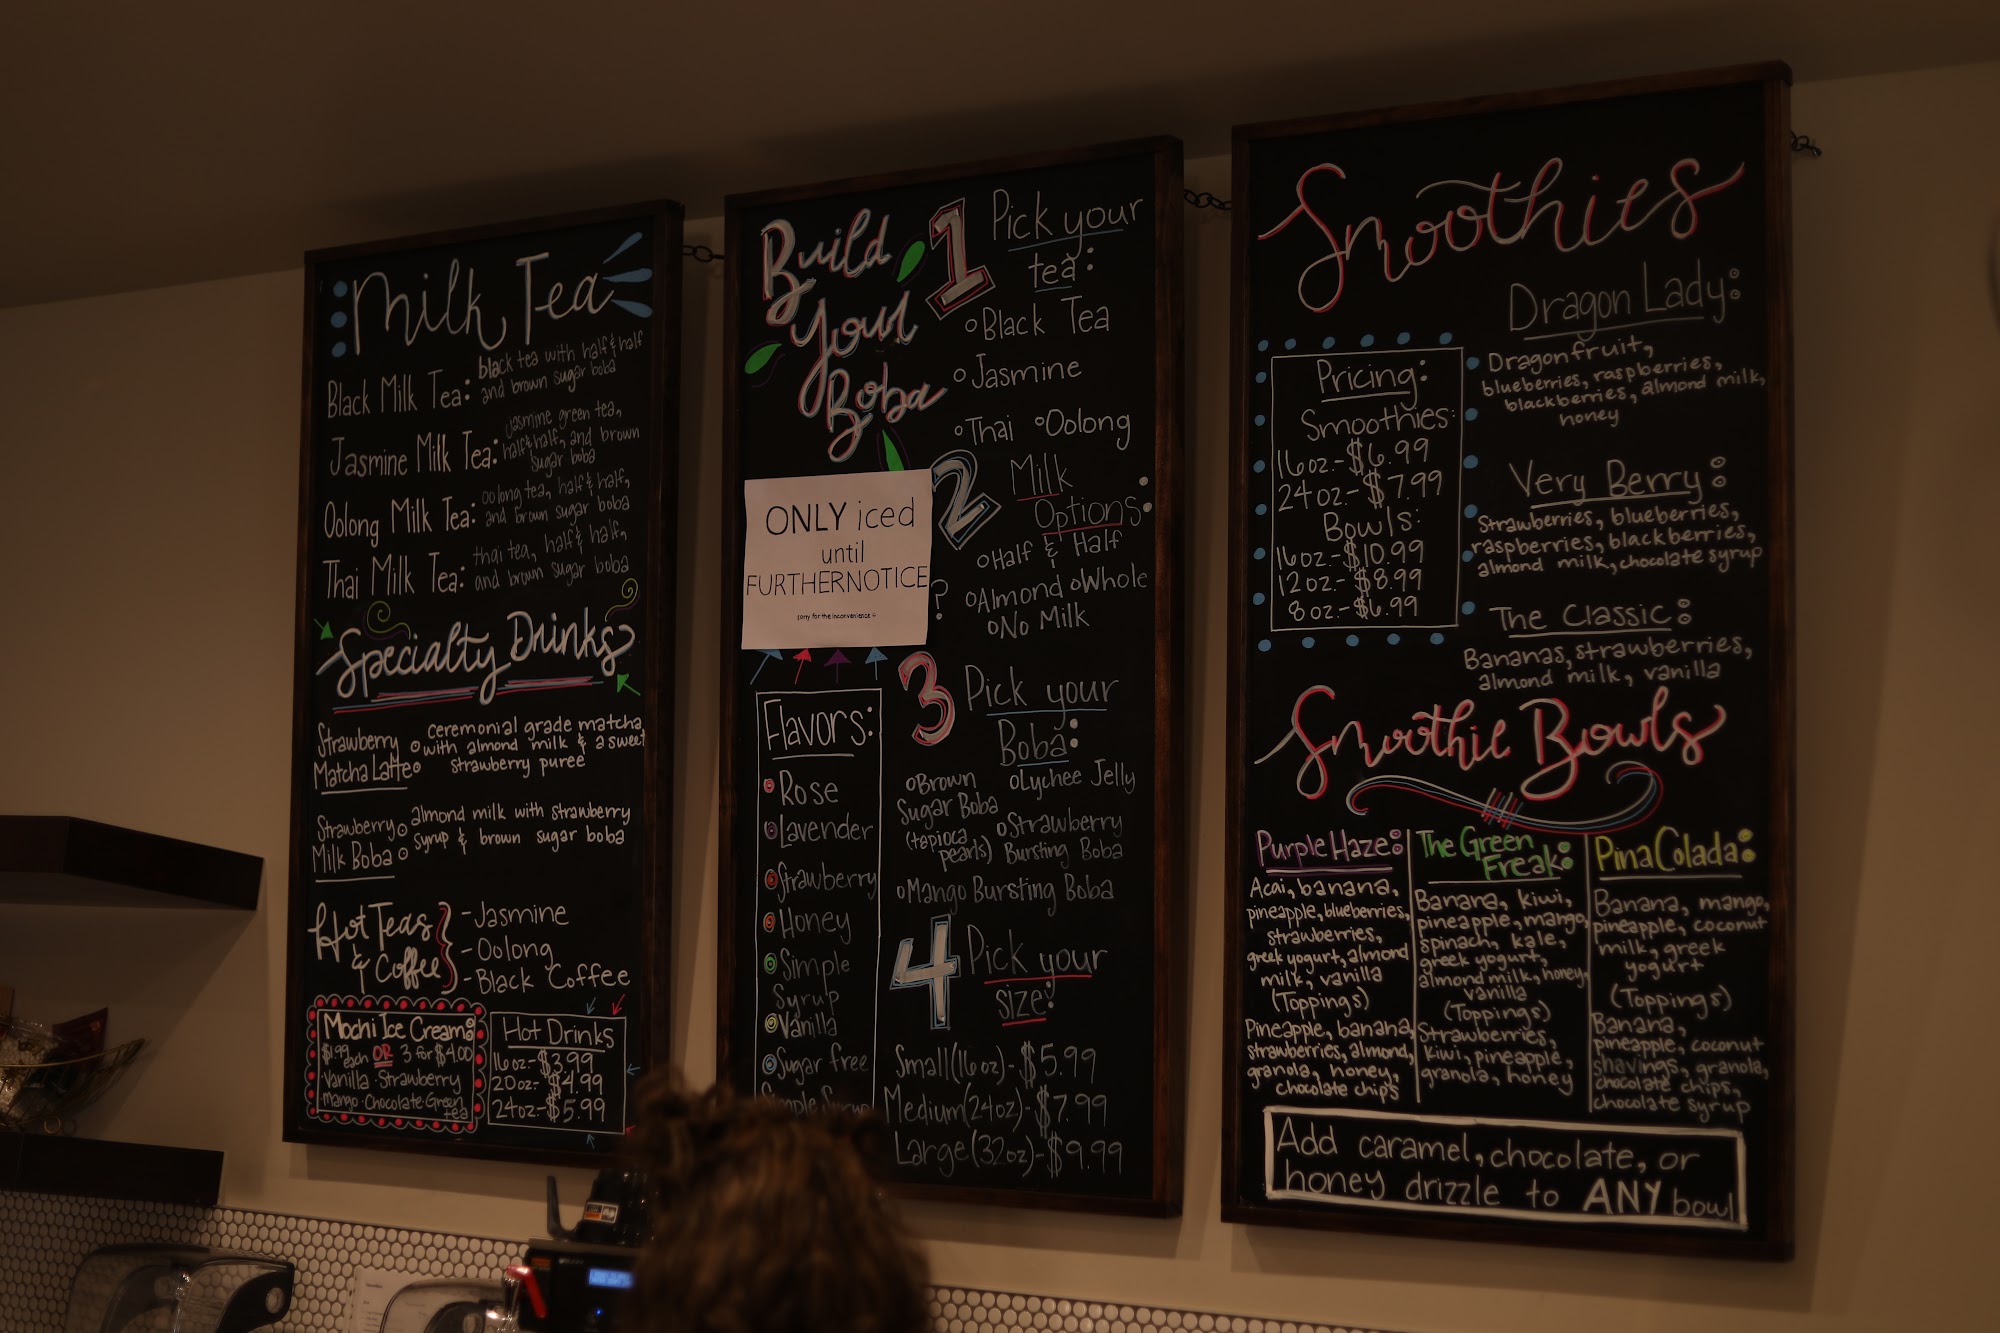 Milk Tea
Black Milk Tea: black tea with half & half
and brown sugar boba
Jasmine Milk Tea: jasmine green tea,
half & half, and brown
sugar boba
Oolong Milk Tea: oolong tea, half & half,
and brown sugar boba
Thai Milk Tea: thai tea, half & half,
and brown sugar boba
Specialty Drinks
Strawberry
Matcha Latte:
ceremonial grade matcha
with almond milk & a sweet
strawberry puree
Strawberry
Milk Boba:
almond milk with strawberry
syrup & brown sugar boba
Hot Teas
& Coffee
- Jasmine
- Oolong
- Black Coffee
Mochi Ice Cream:
$1.99 each OR 3 for $4.00
Vanilla · Strawberry
Mango · Chocolate · Green
tea
Hot Drinks
16oz- $3.99
20oz- $4.99
24oz- $5.99
Build
Your
Boba
ONLY iced
until
FURTHERNOTICE
sorry for the inconvenience
Flavors:
Rose
Lavender
Strawberry
Honey
Simple
Syrup
Vanilla
Sugar free
Simple Syrup
1 Pick your
tea:
Black Tea
Jasmine
Thai Oolong
2 Milk
Options:
?
Half & Half
Almond Whole
No Milk
3 Pick your
Boba:
Brown
Sugar Boba
(tapioca
pearls)
Lychee Jelly
Strawberry
Bursting Boba
Mango Bursting Boba
4 Pick your
size:
Small(16oz)-$5.99
Medium(24oz)-$7.99
Large(32oz)-$9.99
Smoothies
Pricing:
Smoothies:
16oz.-$6.99
24oz-$7.99
Bowls:
16oz-$10.99
12oz-$8.99
8oz-$6.99
Dragon Lady:
Dragonfruit,
blueberries, raspberries,
blackberries, almond milk,
honey
Very Berry:
Strawberries, blueberries,
raspberries, blackberries,
almond milk, chocolate syrup
The Classic:
Bananas, strawberries,
almond milk, vanilla
Smoothie Bowls
Purple Haze:
Acai, banana,
pineapple, blueberries,
strawberries,
greek yogurt, almond
milk, vanilla
(Toppings)
Pineapple, banana,
strawberries, almond,
granola, honey,
chocolate chips
The Green
Freak:
Banana, kiwi,
pineapple, mango,
spinach, kale,
greek yogurt,
almond milk, honey,
vanilla
(Toppings)
Strawberries,
kiwi, pineapple,
granola, honey
Pina Colada:
Banana, mango,
pineapple, coconut
milk, greek
yogurt
(Toppings)
Banana,
pineapple, coconut
shavings, granola,
chocolate chips,
chocolate syrup
Add caramel, chocolate, or
honey drizzle to ANY bowl